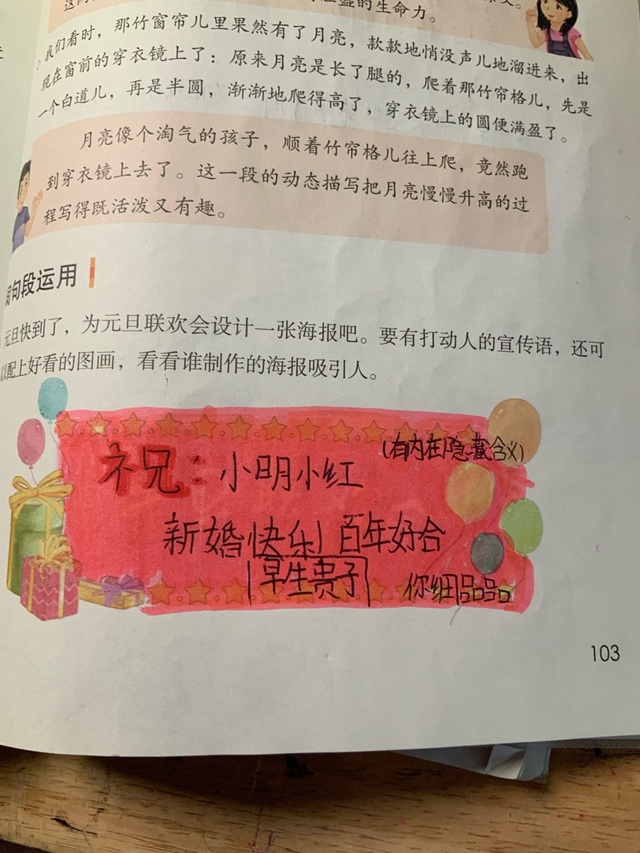 盎的生命力。
我们看时，那竹窗帘儿里果然有了月亮，款款地悄没声儿地溜进来，出
现在窗前的穿衣镜上了：原来月亮是长了腿的，爬着那竹帘格儿，先是
一个白道儿，再是半圆，渐渐地爬得高了，穿衣镜上的圆便满盈了。
月亮像个淘气的孩子，顺着竹帘格儿往上爬，竟然跑
到穿衣镜上去了。这一段的动态描写把月亮慢慢升高的过
程写得既活泼又有趣。
句段运用
元旦快到了，为元旦联欢会设计一张海报吧。要有打动人的宣传语，还可
以配上好看的图画，看看谁制作的海报吸引人。
(有内在隐藏含义)
祝：小明小红
新婚快乐！百年好合
早生贵子 你细品品
103